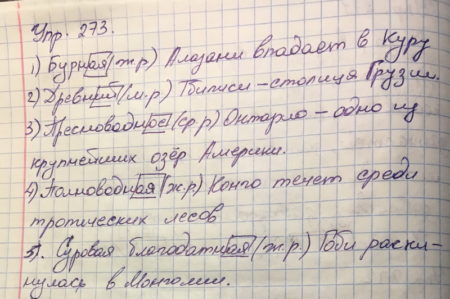 Упр. 273.
1) Бурная (ж.р) Алазани впадает в Куру
2) Древний (м.р) Тбилиси – столица Грузии.
3) Пресноводное (ср.р) Онтарио – одно из
крупнейших озёр Америки.
4) Полноводная (ж.р) Конго течет среди
тропических лесов
5). Суровая благодатная (ж.р.) Гоби раски-
нулась в Монголии.